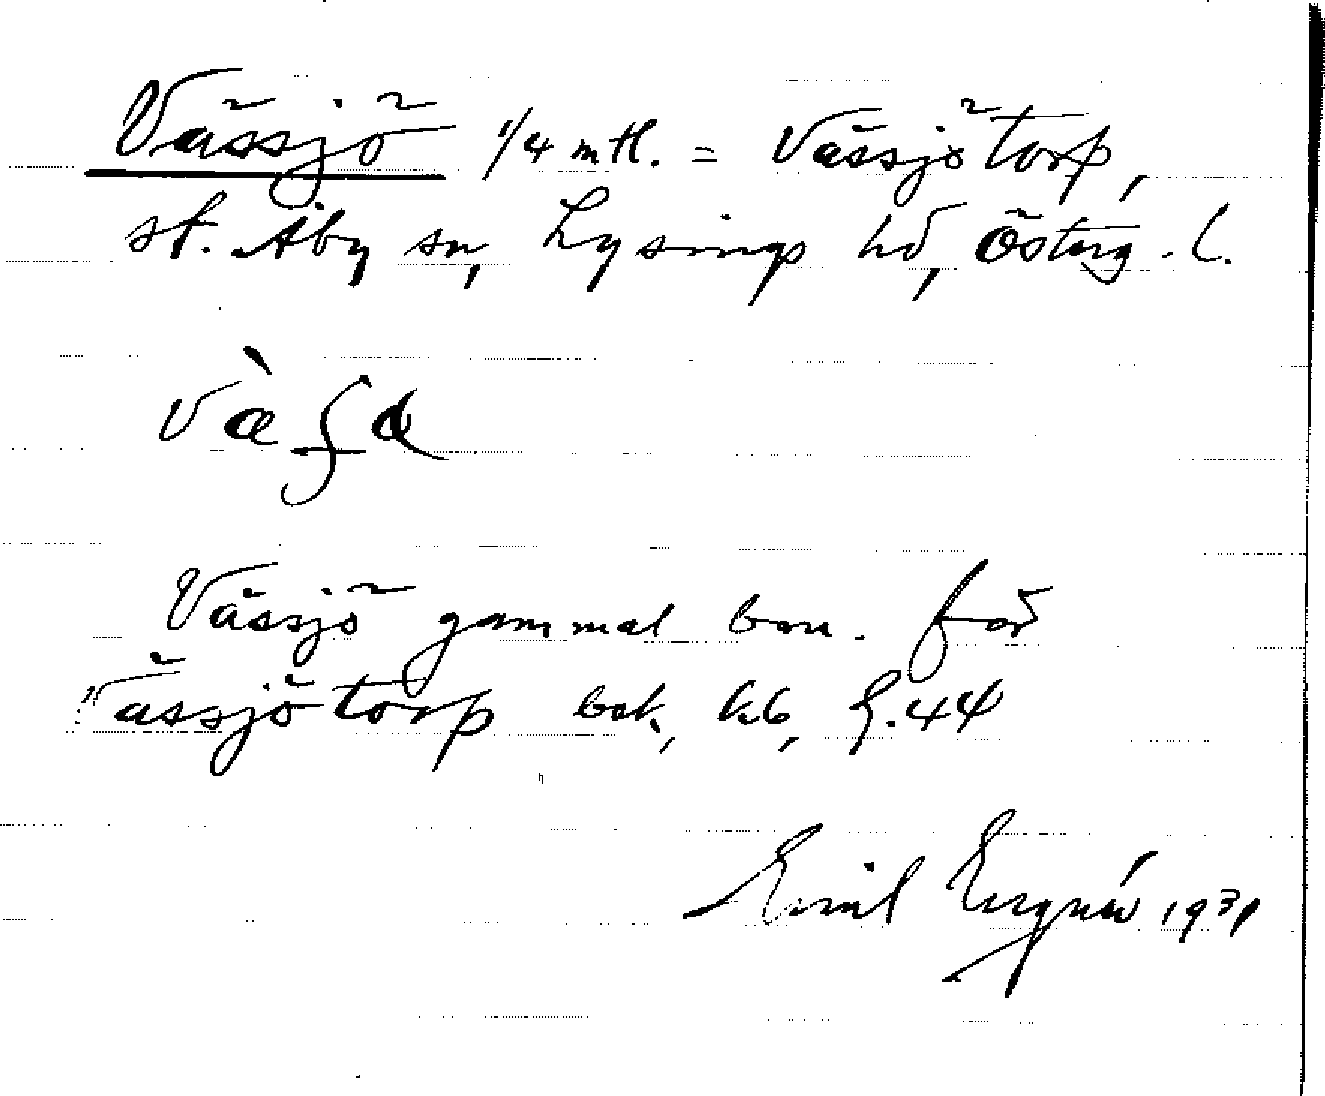 Vässjö 1/4 mtl. = Vässjötorp,
st. Åby sn, Lysings hd, Österg. l.
Vässjö gammal ben. för
Vässjötorp bok, kb, G. 44
Emil 1931